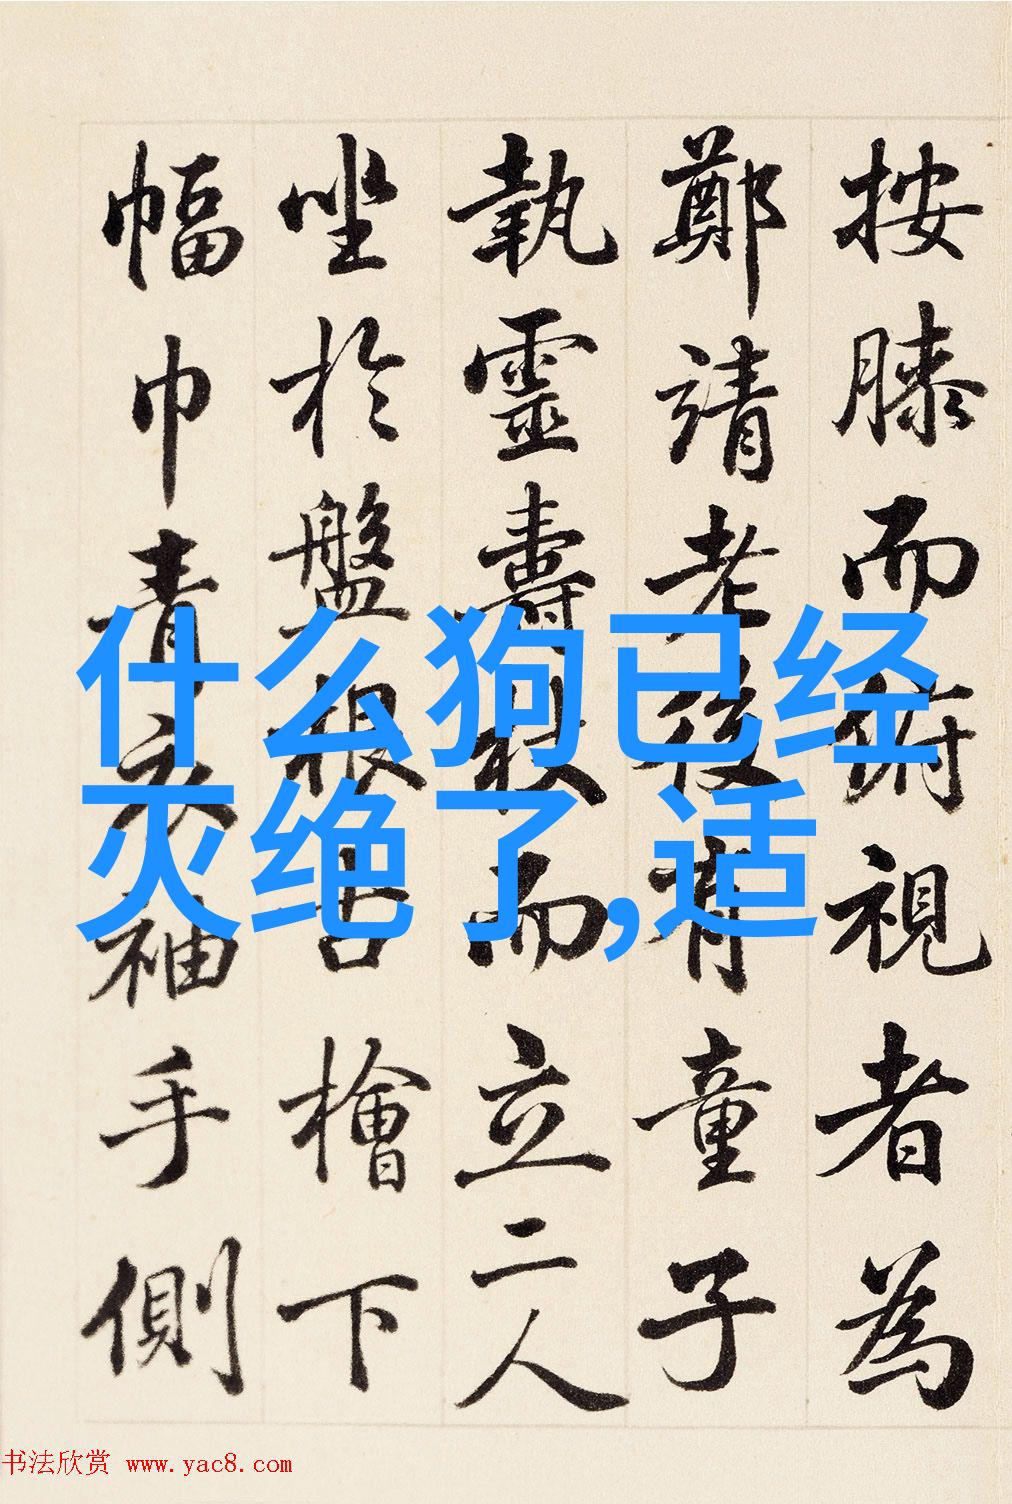 按膝而俯視者為
鄭靖老後有童子
執靈壽杖而立二人
坐於盤根古檜下
幅巾青衣袖手側
什么狗已经
灭绝了,适
书法欣赏 www.yac8.com